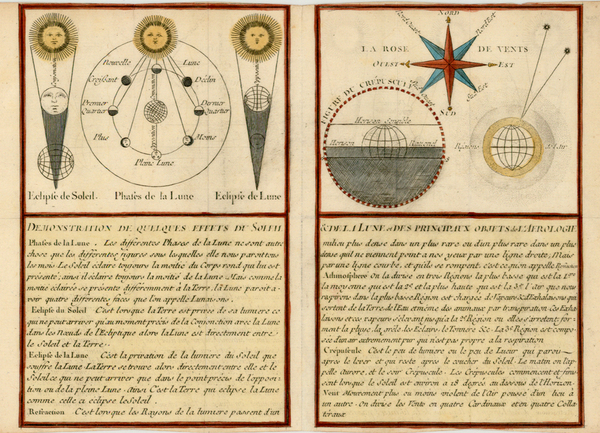 Nouvelle
Lune
Croissant
Declin
Premier
Quartier
Dernier
Quartier
Plus
Moins
Plaine Lune
Eclipse de Soleil.
Phases de la Lune
Eclipse de Lune
DEMONSTRATION DE QUELQUES EFFETS DU SOLEIL
Phases de la Lune. Les différentes Phases de la Lune ne sont autre
chose que les différentes figures sous lesquelles elle nous paroit tous
les mois. Le Soleil éclaire toujours la moitié du Corps rond qui lui est
présenté; ainsi il éclaire toujours la moitié de la Lune. Mais comme la
moitié éclairée se présente différemment à la Terre, la Lune paroit a-
voir quatre différentes faces que l'on appelle Lunaisons.
Eclipse du Soleil C'est lorsque la Terre est privée de sa lumiere ce
qui ne peut arriver qu'au moment précis de la Conjonction avec la Lune
dans les Nœuds de l'Ecliptique alors la Lune est directement entre
le Soleil et la Terre.
Eclipse de la Lune C'est la privation de la lumiere du Soleil que
souffre la Lune. La Terre se trouve alors directement entre elle et le
Soleil ce qui ne peut arriver que dans le point précis de l'opposi-
tion ou de la pleine Lune. Ainsi C'est la Terre qui eclipse la Lune
comme celle ci eclipse le Soleil.
Refraction C'est lorsque les Rayons de la lumiere passent d'un
NORD
LA ROSE DE VENTS
OUEST
EST
SUD
FIGURE DU CRÉPUSCULE
Horison Sensible
Horison
Raisonné
Régions
de l'air
& DE LA LUNE et DES PRINCIPAUX OBJETS de L'AEROLOGIE
milieu plus dense dans un plus rare ou d'un plus rare dans un plus
dense qui ne viennent point a nos yeux par une ligne droite, Mais
par une ligne brisée, et qu'ils se rompent: c'est ce qu'on appelle Refraction
Athmosphere On la divise en trois Régions la plus basse qui est la 1ere
la moyenne qui est la 2e et la plus haute qui est la 3e. l'air que nous
respirons dans la plus basse Région est chargée de Vapeurs & d'Exhalaisons qui
sortent de la Terre de l'Eau et même des animaux par transpiration. Ces Exhalai-
sons etc.
la pluye, la grêle, les Eclairs, le Tonnerre &c. La 3e Région est compo-
sée d'un air autrement pur qui n'est pas propre a la respiration
Crépuscule C'est le peu de lumiere ou le peu de Lueur qui paroit
après le lever et qui reste après le coucher du Soleil. Le matin on l'ap-
pelle Aurore, et le soir Crépuscule. Les Crépuscules commencent et finis-
sent lorsque le Soleil est environ a 18 degrés au dessous de l'Horison.
Vent Mouvement plus ou moins violent de l'air poussé d'un lieu à
un autre. On divise les Vents en quatre Cardinaux et en quatre Colla-
teraux